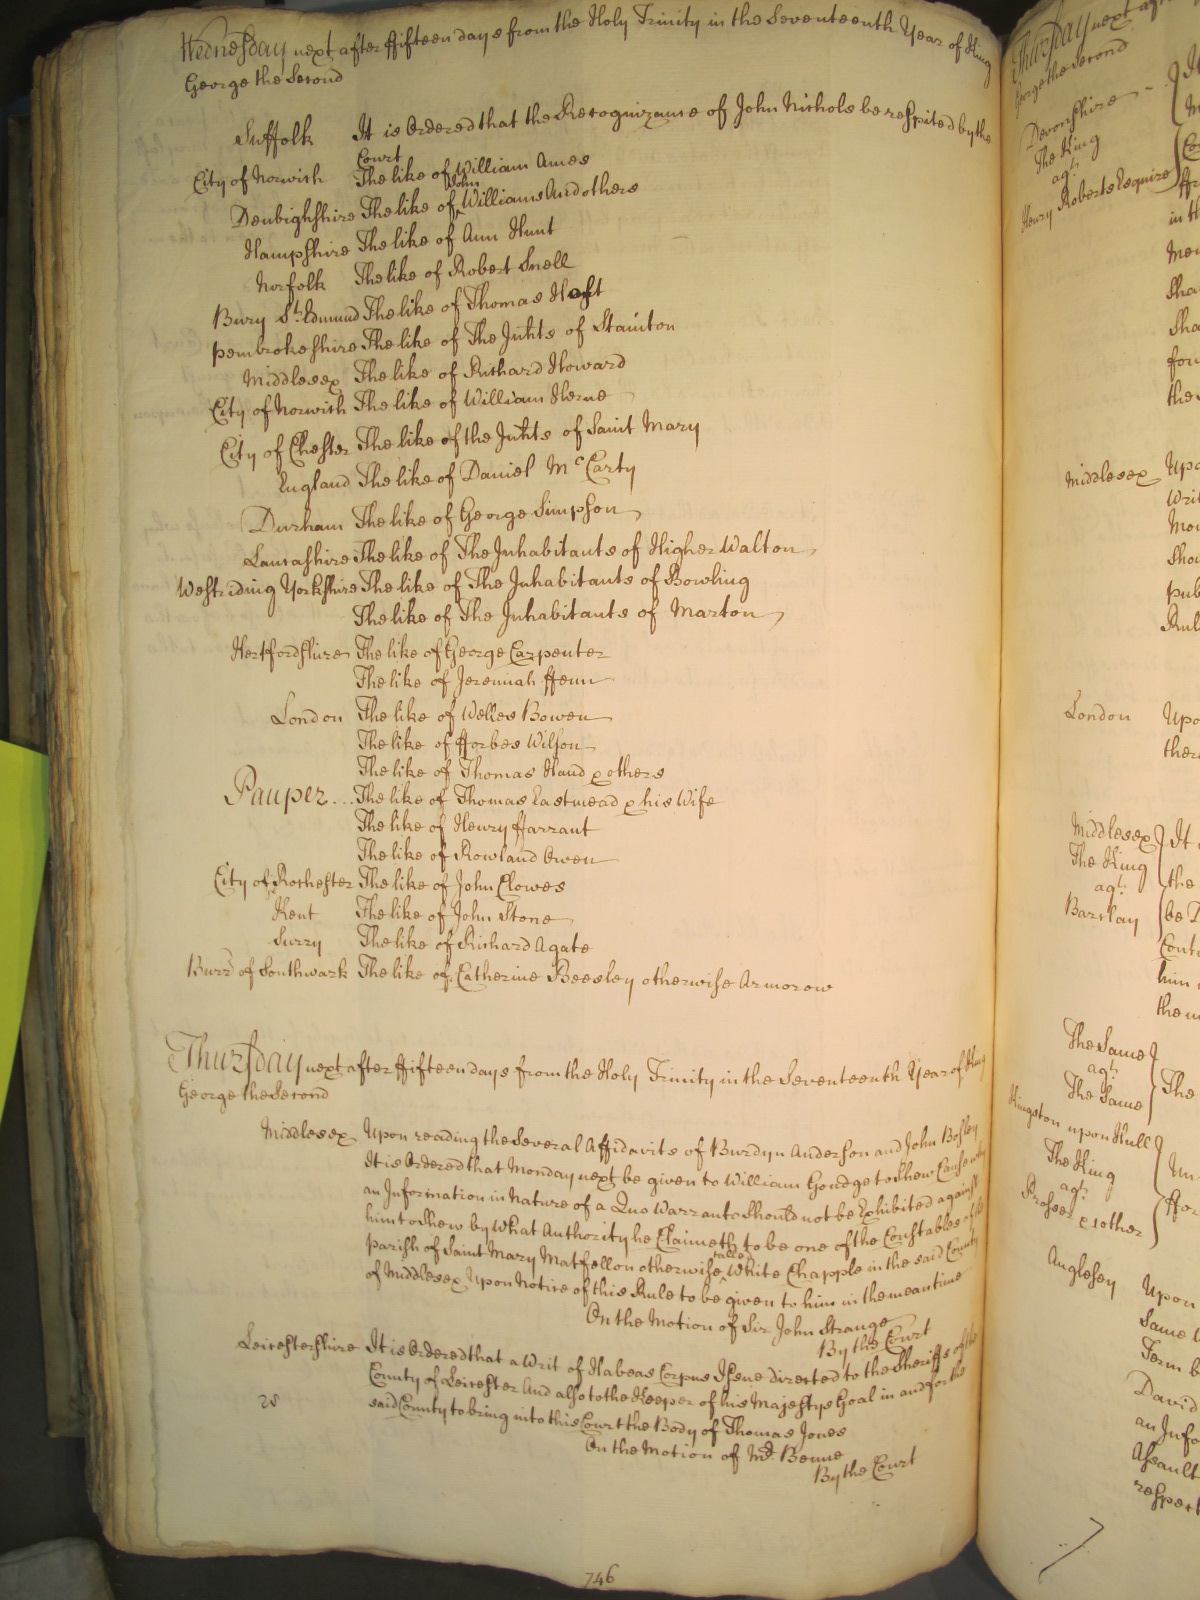 Wednesday next after ffifteen days from the Holy Trinity in the Seventeenth Year of King
George the Second
Suffolk It is Ordered that the Recognizance of John Nichols be respited by the
Court
City of Norwich The like of William Ames
Denbighshire The like of John Williams And others
Hampshire The like of Ann Hunt
Norfolk The like of Robert Snell
Bury St. Edmund The like of Thomas
Pembrokeshire The like of The Inhts of Stainton
Middlesex The like of Richard Howard
City of Norwich The like of William Herne
City of Chester The like of the Inhts of Saint Mary
England The like of Daniel McCarty
Durham The like of George Simpson
Lancashire The like of The Inhabitants of Higher Walton
Westriding Yorkshire The like of The Inhabitants of Bowling
The like of The Inhabitants of Marton
Hertfordshire The like of George Carpenter
The like of Jeremiah ffenn
London The like of Welles Bowen
The like of fforbes Wilson
The like of Thomas Hand & others
Pauper... The like of Thomas Eastmead & his Wife
The like of Henry ffarrant
The like of Rowland Owen
City of Rochester The like of John Clowes
Kent The like of John Stone
Surry The like of Richard Agate
Burr. of Southwark The like of Catherine Beesley otherwise Armorow
Thursday next after ffifteen days from the Holy Trinity in the Seventeenth Year of King
George the Second
Middlesex Upon reading the Several Affidavits of Burdyn Anderson and John Bosley
It is Ordered that Monday next be given to William Goudge to Shew Cause why
an Information in Nature of a Quo Warranto Should not be Exhibited against
him to Shew by What Authority he Claimeth to be one of the Constables of the
parish of Saint Mary Matfellon otherwise called White Chapple in the said County
of Middlesex Upon Notice of this Rule to be given to him in the mean time
On the Motion of Sir John Strange
By the Court
Leicestershire It is Ordered that a Writ of Habeas Corpus Issue directed to the Sheriffs of the
County of Leicester And also to the Keeper of his Majestys Goal in and for the
said County to bring into this Court the Body of Thomas Jones
On the Motion of Mr. Benne
By the Court
746
Thursday next
George the Second
Devonshire
The King
agt.
Henry Roberts Esquire
in th
the
Middlesex Upo
Writ
Mon
Shou
pub
Rul
London Upo
there
Middlesex It
The King the
agt.
Barclay be D
him
the m
The Same
agt. The
The Same
Kingston upon Hull
The King
agt.
Prosser & other
Anglesey Upon
Same
Term b
David
an Info
Assault
respect